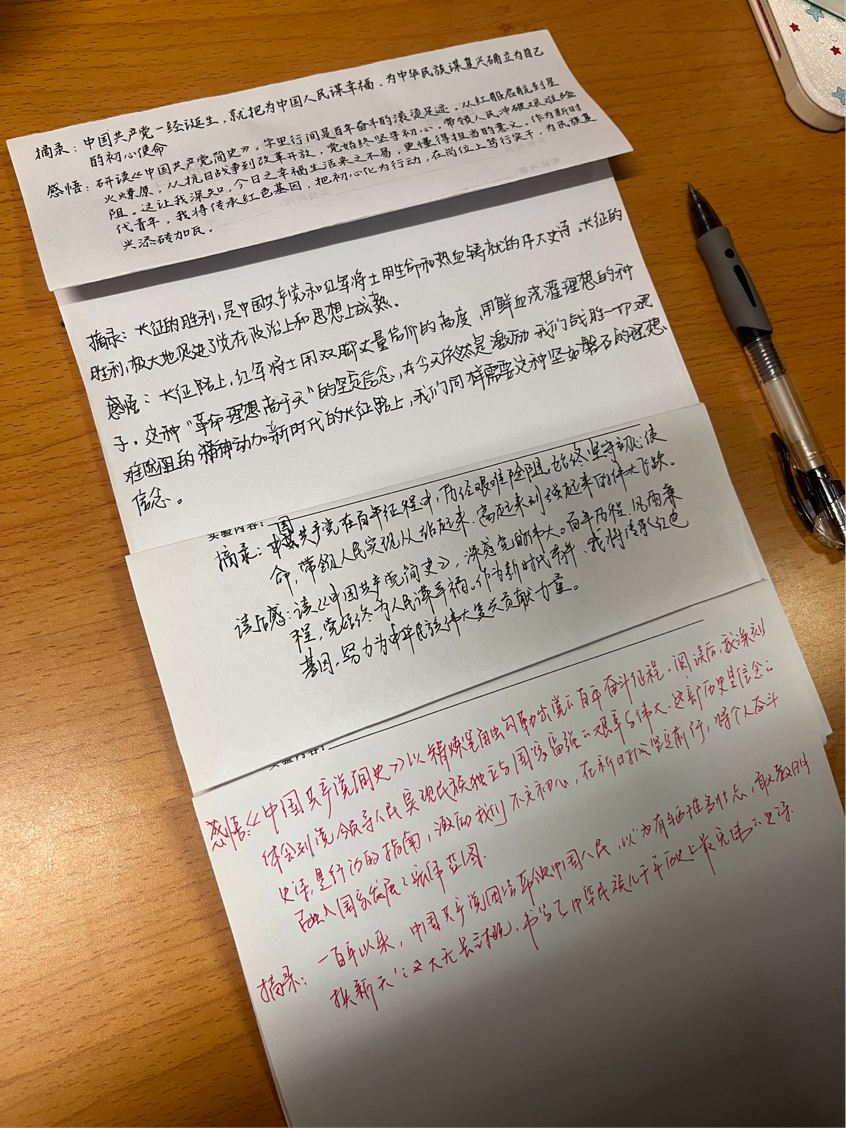 摘录：中国共产党一经诞生，就把为中国人民谋幸福、为中华民族谋复兴确立为自己
的初心使命
感悟：研读《中国共产党简史》，字里行间是百年奋斗的滚烫足迹。从红船启航到星
火燎原，从抗日战争到改革开放，党始终坚守初心，带领人民冲破艰难险
阻。这让我深知，今日之幸福生活来之不易，更懂得担当的意义。作为新时
代青年，我将传承红色基因，把初心化为行动，在岗位上笃行实干，为民族复
兴添砖加瓦。
摘录：长征的胜利，是中国共产党和红军将士用生命和热血铸就的伟大史诗。长征的
胜利，极大地促进了党在政治上和思想上成熟。
感悟：长征路上，红军将士用双脚丈量信仰的高度，用鲜血浇灌理想的种
子，这种“革命理想高于天”的坚贞信念，在今天依然是激励我们战胜一切艰
难险阻的精神动力。新时代的长征路上，我们同样需要这种坚如磐石的理想
信念。
实验内容：
摘录：中国共产党在百年征程中，历经艰难险阻，始终坚守初心使
命，带领人民实现从站起来、富起来到强起来的伟大飞跃。
读后感：读《中国共产党简史》，深感党的伟大。百年历程，风雨兼
程，党始终为人民谋幸福。作为新时代青年，我将传承红色
基因，努力为中华民族伟大复兴贡献力量。
实验内容：
感悟：《中国共产党简史》以精炼笔触勾勒出党的百年奋斗征程。阅读后，我深刻
体会到党领导人民实现民族独立与国家富强的艰辛与伟大。这部历史是信念的
史诗，是行动的指南，激励我们不忘初心，在新时代坚定前行，将个人奋斗
融入国家发展的宏伟蓝图。
摘录：一百年以来，中国共产党团结带领中国人民，以“为有牺牲多壮志，敢教日月
换新天”的大无畏气概，书写了中华民族几千年历史上最恢宏的史诗